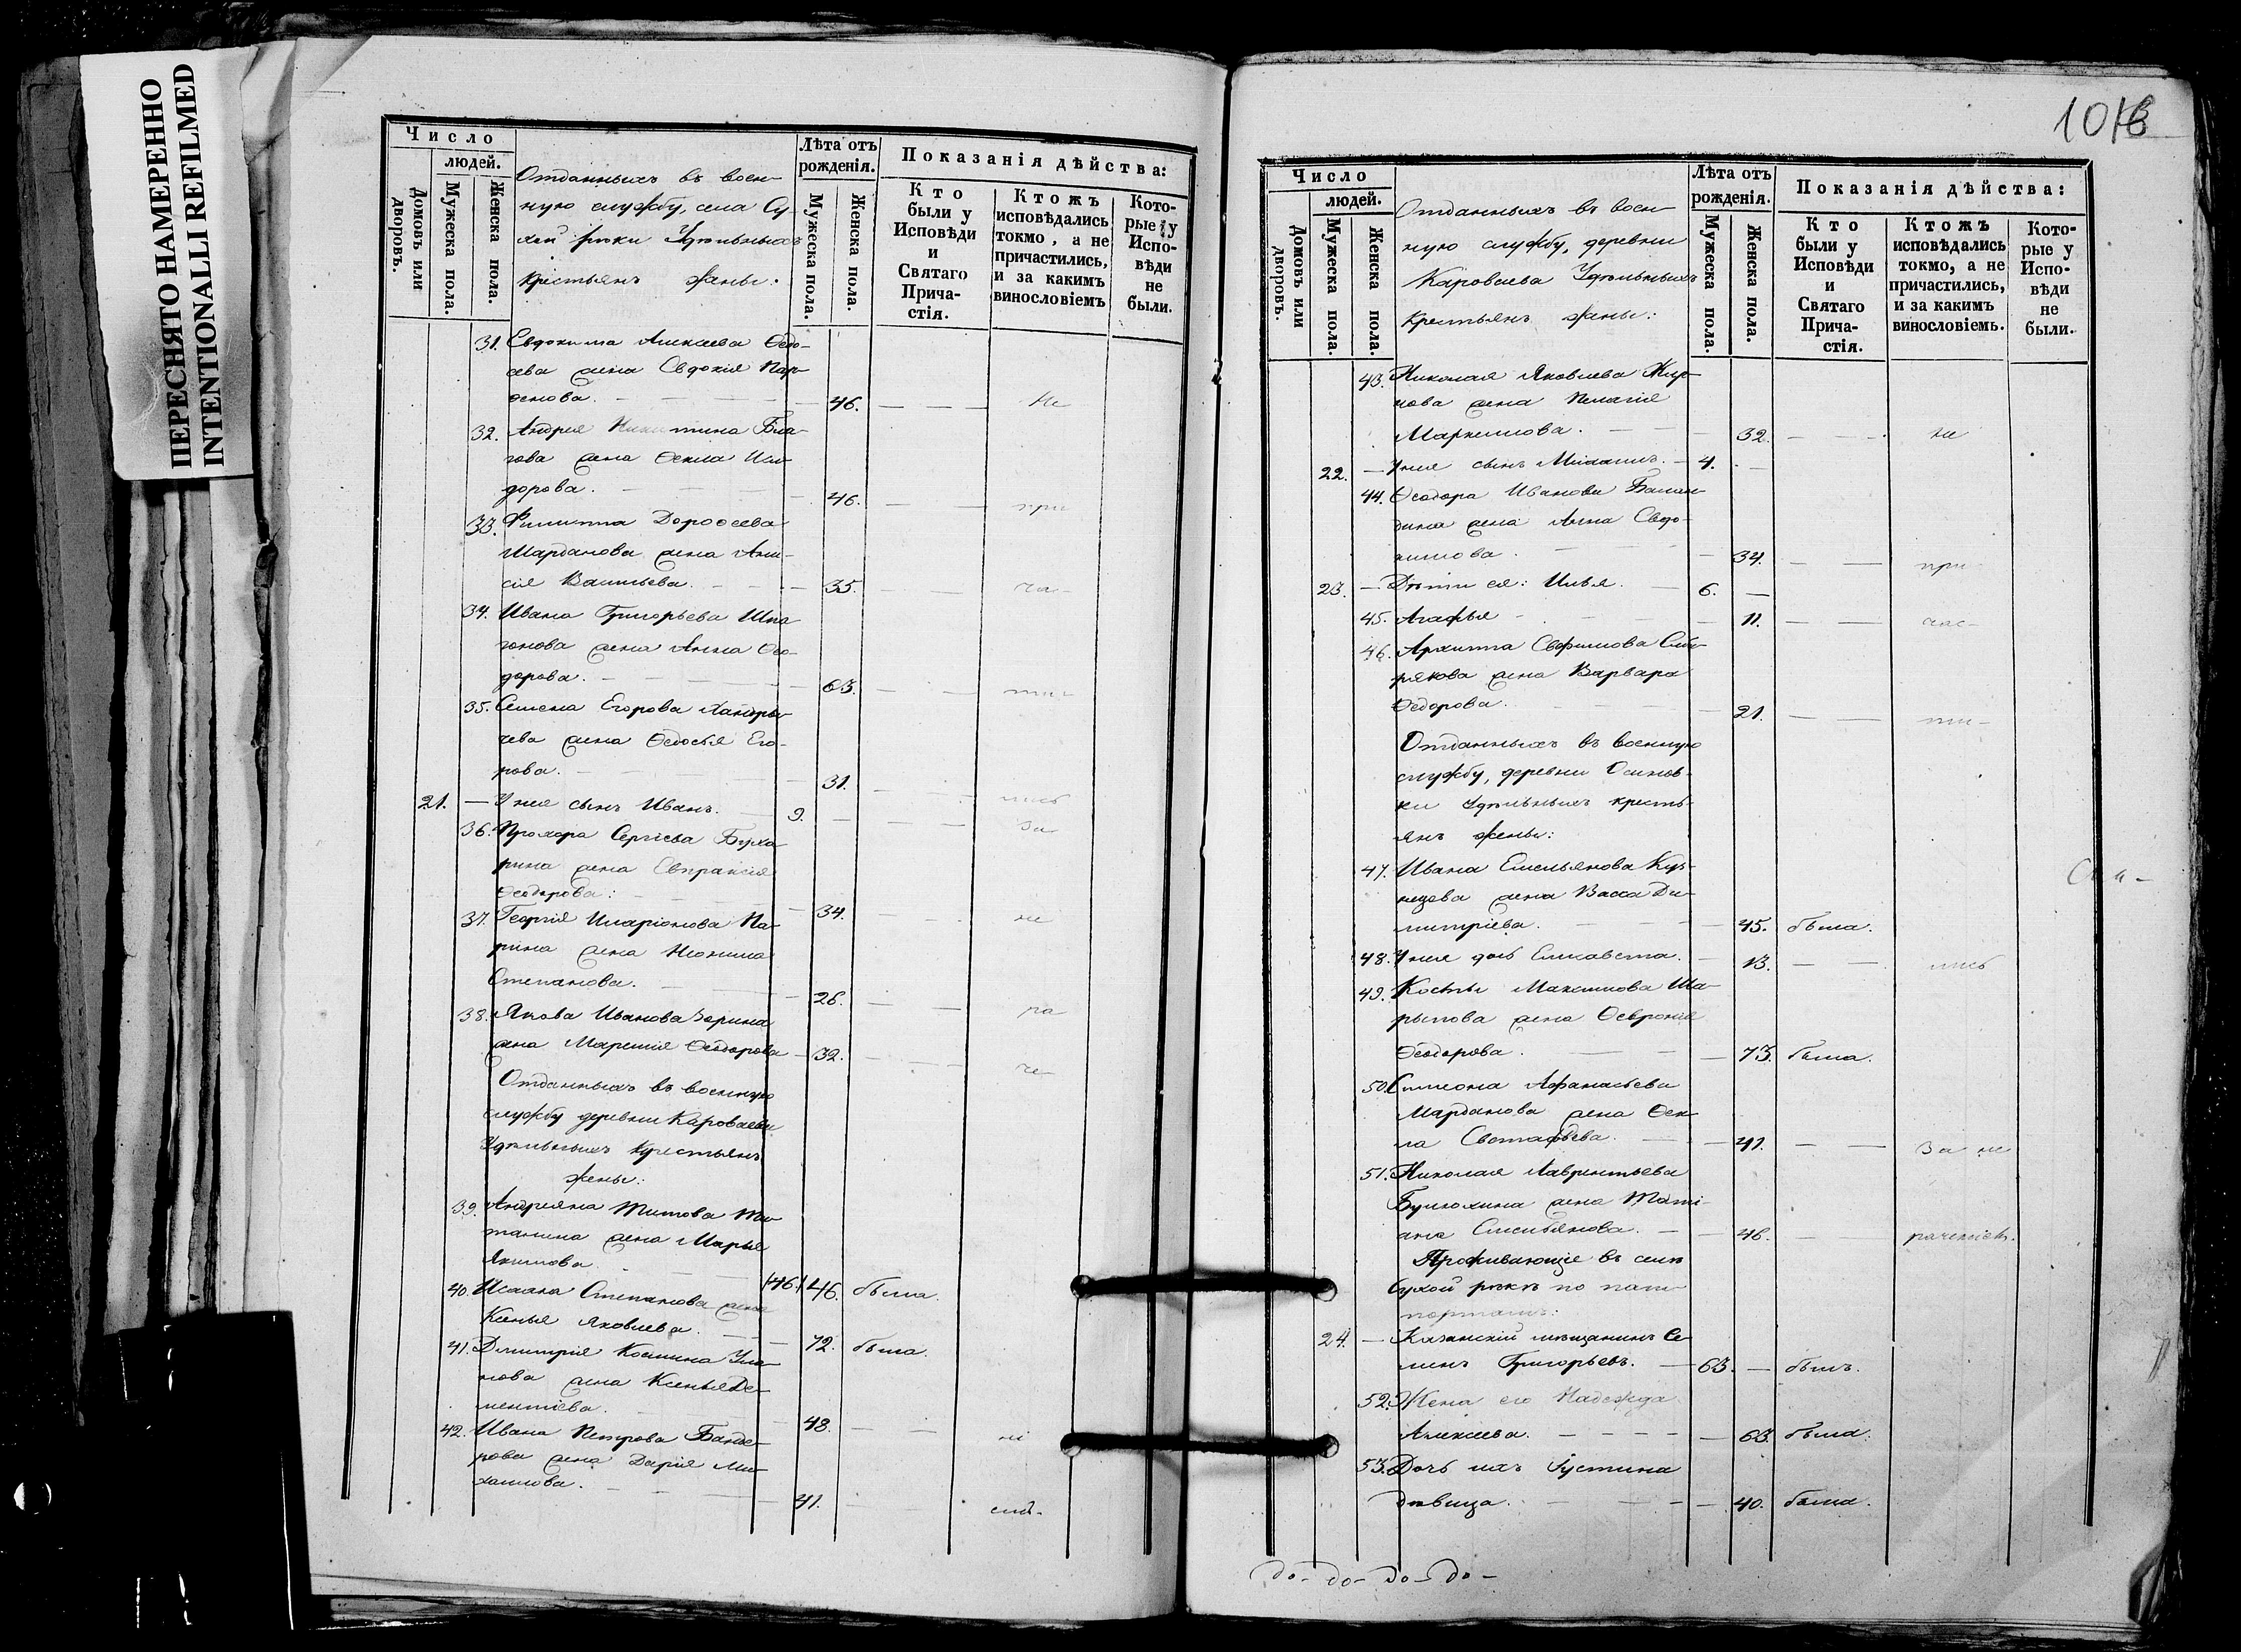 ПЕРЕСНЯТО НАМЕРЕННО
INTENTIONALLI REFILMED
Число
людей.
Домовъ или дворовъ.
Мужеска пола.
Женска пола.
Отданныхъ въ воен-
ную службу, села Су-
хой рѣки Удѣльныхъ
крестьянъ жены:
Лѣта отъ
рожденія.
Мужеска пола.
Женска пола.
Показанія дѣйства:
Кто
были у
Исповѣди
и
Святаго
Прича-
стія.
Ктожъ
исповѣдались
токмо, а не
причастились,
и за какимъ
винословіемъ
Кото-
рые у
Испо-
вѣди
не
были.
31. Евдокима Алексѣева Ѳедо-
сѣева жена Евдокія Пар-
ѳенова. 46. Не
32. Андрея Никитина Бла-
гова жена Ѳекла Иси-
дорова. 46. при
33. Филиппа Дороѳеева
Шарданова жена Ани-
сія Васильева. 35. ча-
34. Ивана Григорьева
жена Анна Ѳео-
дорова. 63. сти
35. Семена Егорова
чева жена Ѳедосья Его-
рова. 31. лись
21. — У нея сынъ Иванъ. 9. — за
36. Прохора Сергіева Буха-
рина жена Евпраксія
Ѳеодорова: 34. не
37. Георгія Иларіонова Па-
рина жена Неонила
Степанова. 26. ра
38. Якова Иванова Зорина
жена Маремія Ѳеодорова 32. че
Отданныхъ въ военную
службу деревни Короваевы
Удѣльныхъ крестьянъ
жены:
39. Андреяна Титова Ти-
танина жена Марья
Якимова 46. 46. была.
40. Исаака Степанова жена
Ксенья Яковлева. 72. была.
41. Димитрія Космина Ула-
нова жена Ксенья Де-
ментіева. 48. ні
42. Ивана Петрова Банде-
рова жена Дарія Ми-
хаилова. 41.
Число
людей.
Домовъ или дворовъ.
Мужеска пола.
Женска пола.
Отданныхъ въ воен-
ную службу, деревни
Кароваева Удѣльныхъ
крестьянъ жены:
Лѣта отъ
рожденія.
Мужеска пола.
Женска пола.
Показанія дѣйства:
Кто
были у
Исповѣди
и
Святаго
Прича-
стія.
Ктожъ
исповѣдались
токмо, а не
причастились,
и за какимъ
винословіемъ.
Кото-
рые у
Испо-
вѣди
не
были.
43. Николая Яковлева Жир-
нова жена Пелагія
Маркелова. 32. не
22. — У нея сынъ Михаилъ. 4. —
44. Ѳеодора Иванова Балан-
дина жена Анна Евдо-
кимова. 34. при-
23. — Дѣти ея: Илья. 6. —
45. Агафья 11.
46. Архиппа Евфимова Сиби-
рякова жена Варвара
Ѳедорова. 21. ти-
Отданныхъ въ военную
службу, деревни Осинов-
ки Удѣльныхъ кресть-
янъ жены:
47. Ивана Емельянова Куз-
нецова жена Васса Ди-
митріева. 45. была.
48. У нея дочь Елисавета. 13. лись
49. Косьмы Максимова Ша-
рыпова жена Ѳевронія
Ѳеодорова. 73. была.
50. Симеона Афанасьева
Марданова жена Ѳек-
ла Евстафьева. 41. За не
51. Николая Лаврентьева
жена Таті-
ана Емельянова. 46. раченіемъ.
Проживающіе въ селѣ
Сухой рѣкѣ по паш-
портамъ:
24. — Казанскій мѣщанинъ Се-
менъ Григорьевъ. 63. — былъ.
52. Жена его Надежда
Алексеева. 63. была.
53. Дочь ихъ Іустина
дѣвица. 40. была.
до- до- до- до-